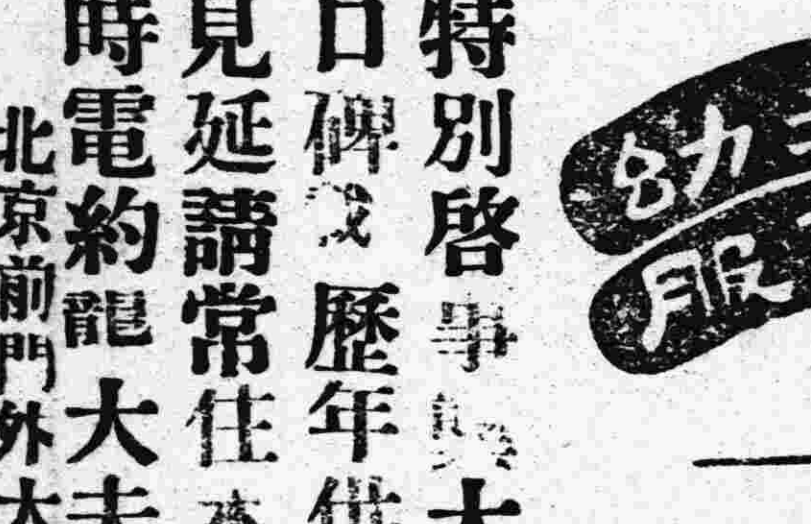 幼
服
特別啓事
口碑 歷年供
見延請常住
時電約龍大夫
北京前門外大